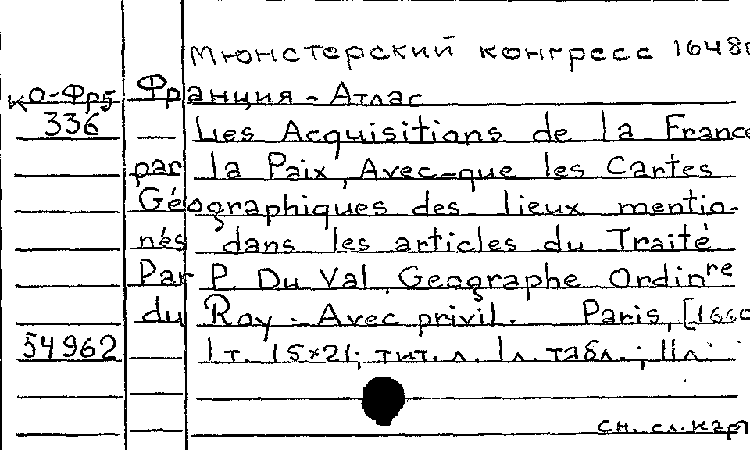 Мюнстерский конгресс 1648
КО-Фр5 Франция - Атлас
336 — Les Acquisitions de la France
par la Paix, Avec-que les Cartes
Géographiques des lieux mentio-
nés dans les articles du Traité
Par P. Du Val Geographe Ordinre
du Roy - Avec privil. Paris, [166
54962 1 т. 15×21; тит. л. 1 л. табл.; 11л.
см. сл. кар